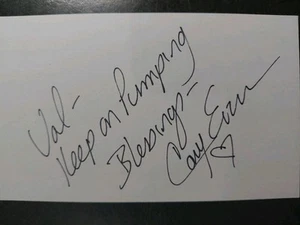 Val-
Keep on Pumping
Blessings-
Cory Everson